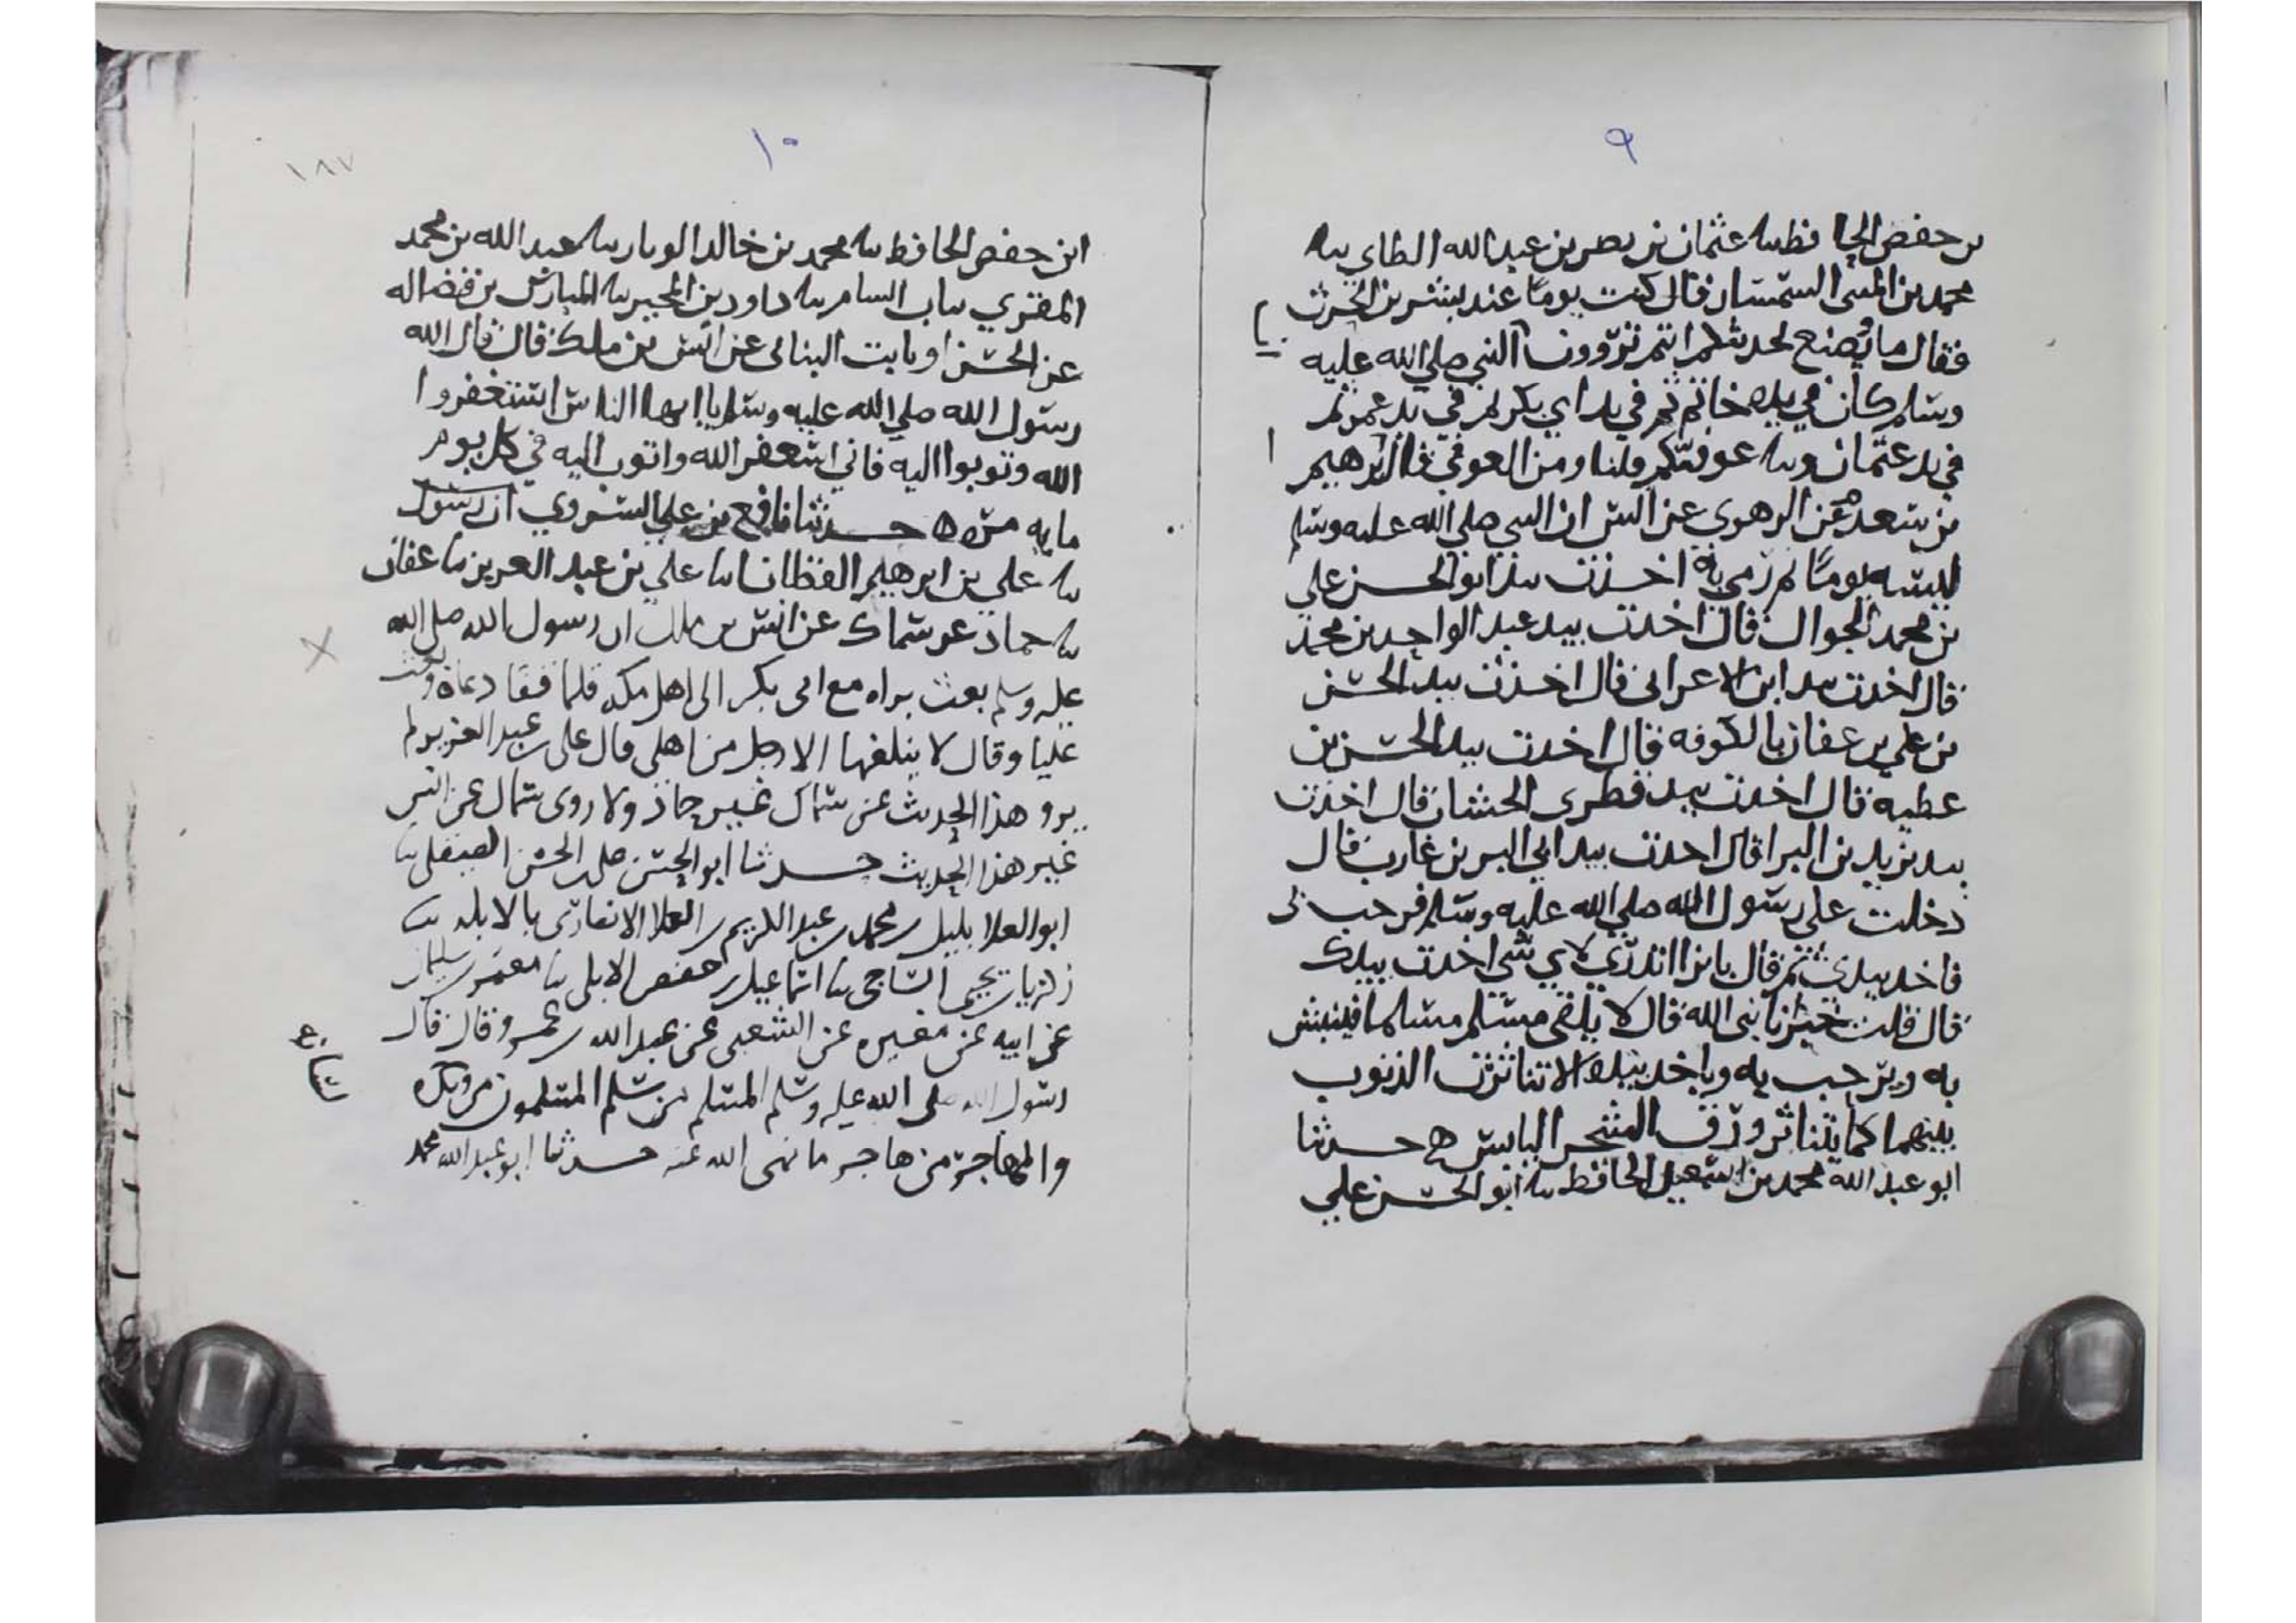 ٩
بن حفص الحافظ نا عثمان بن نصر بن عبد الله الطاي نا
محمد بن المثنى السمسار قال كنت يوما عند بشر بن الحرث
فقال ما يصنع لحدثكم انتم تروون ان النبي صلى الله عليه
وسلم كان في يده خاتم ثم في يد ابي بكر ثم في يد عمر ثم
في يد عثمان ونا عوفيتكم قلنا ومن العوفي قال ابرهيم
بن سعد عن الزهري عن انس ان النبي صلى الله عليه وسلم
لبسه يوما ثم رمى به اخذت بيد ابو الحسن علي
بن محمد الجوال قال اخذت بيد عبد الواحد بن محمد
قال اخذت بيد ابن الاعرابي قال اخذت بيد الحسن
بن علي بن عفان بالكوفه قال اخذت بيد الحسن بن
عطيه قال اخذت بيد قطري الخشاب قال اخذت
بيد يزيد بن البرا قال اخذت بيد ابي البر بن عازب قال
دخلت على رسول الله صلى الله عليه وسلم فرحب بي
فاخذ بيدي ثم قال يا برا اتدري لاي شي اخذت بيدك
قال قلت خيرا يا نبي الله قال لا يلقى مسلم مسلما فيبش
به ويرحب به وياخذ بيده الا تناثرت الذنوب
بينهما كما يتناثر ورق الشجر اليابس ه حدثنا
ابو عبد الله محمد بن اسمعيل الحافظ نا ابو الحسن علي
١٠
١٨٧
ابن حفص الحافظ نا محمد بن خالد نا عبد الله بن محمد
المقري بباب السام نا داود بن المحبر نا المبارك بن فضاله
عن الحسن او ثابت البناني عن انس بن ملك قال قال الله
رسول الله صلى الله عليه وسلم يا ايها الناس استغفروا
الله وتوبوا اليه فاني استغفر الله واتوب اليه في كل يوم
مايه مره ه حدثنا نافع بن علي السروي ان رسول
نا علي بن ابرهيم القطان نا علي بن عبد العزيز نا عفان
نا حماد عن سماك عن انس بن ملك ان رسول الله صلى الله
عليه وسلم بعث براه مع ابي بكر الى اهل مكه فلما قفا دعاه وبعث
عليا وقال لا يبلغها الا رجل من اهلي قال علي بن عبد العزيز لم
يرو هذا الحديث عن سماك غير حماد ولا روى سماك عن انس
غير هذا الحديث حدثنا ابو الحسن الحسن الصيقلي نا
ابو العلا بليل محمد بن عبد الكريم بن العلا الانصاري بالابله نا
زكريا بن يحيى الساجي نا اسماعيل بن حفص الابلي نا معتمر بن سليمان
عن ابيه عن مغيره عن الشعبي عن عبد الله بن عمرو قال قال
رسول الله صلى الله عليه وسلم المسلم من سلم المسلمون من
والمهاجر من هاجر ما نهى الله عنه حدثنا ابو عبد الله محمد